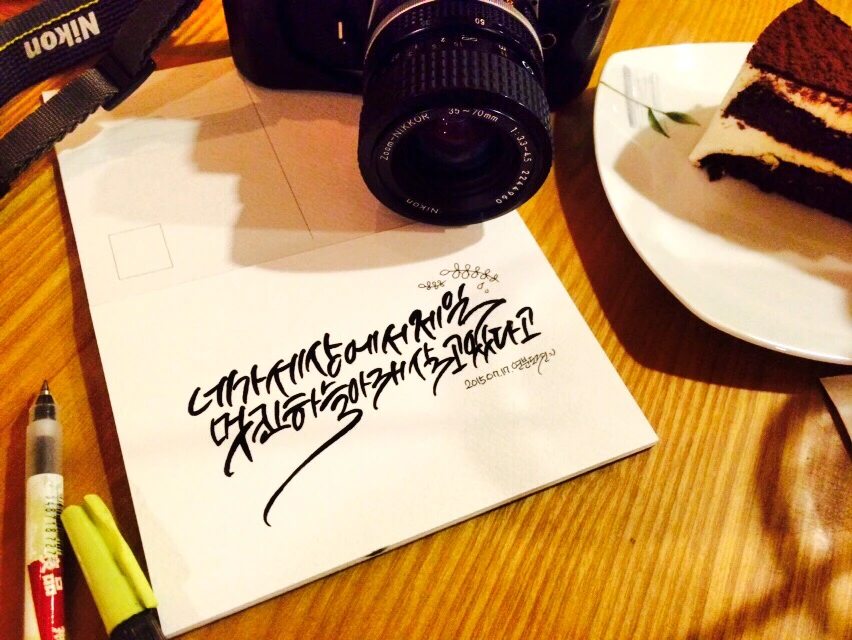 Nikon
Zoom-NIKKOR 35~70mm 1:3.3-4.5 2244960
Nikon
네가 세상에서 제일
멋진 하늘 아래 살고 있다고
2015.07.17
品